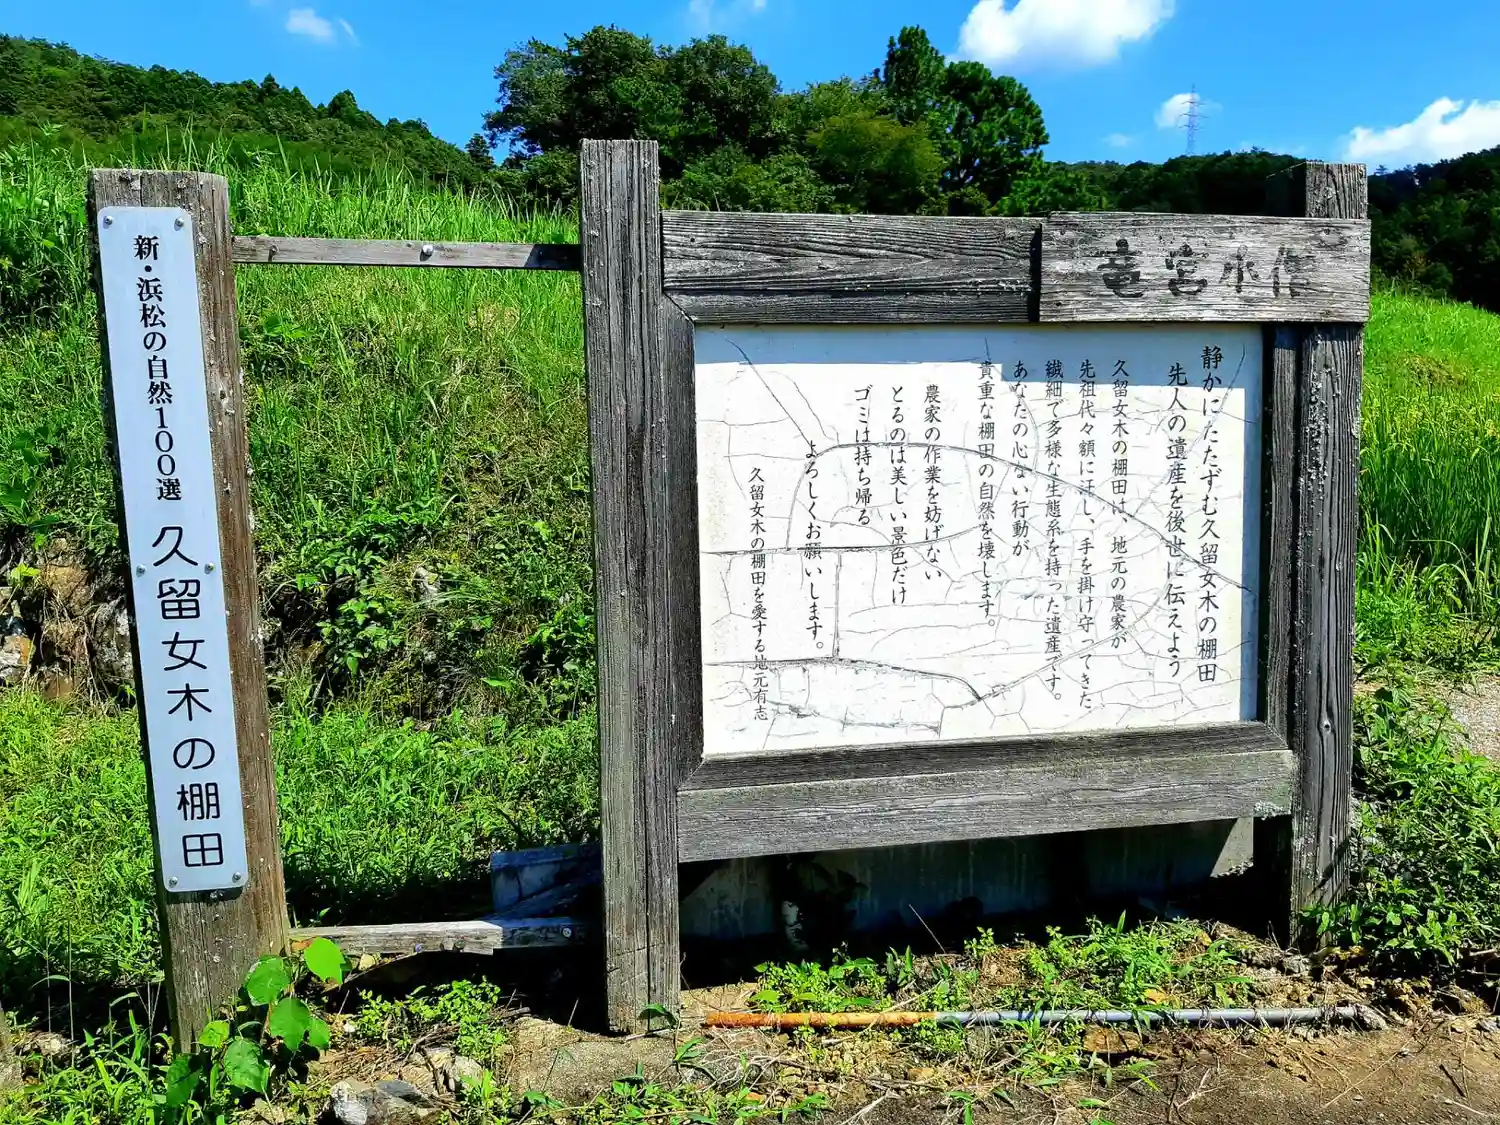 新・浜松の自然100選 久留女木の棚田
竜宮小僧
静かにたたずむ久留女木の棚田
先人の遺産を後世に伝えよう
久留女木の棚田は、地元の農家が
先祖代々額に汗し、手を掛け守ってきた
繊細で多様な生態系を持った遺産です。
あなたの心ない行動が
貴重な棚田の自然を壊します。
農家の作業を妨げない
とるのは美しい景色だけ
ゴミは持ち帰る
よろしくお願いします。
久留女木の棚田を愛する地元有志